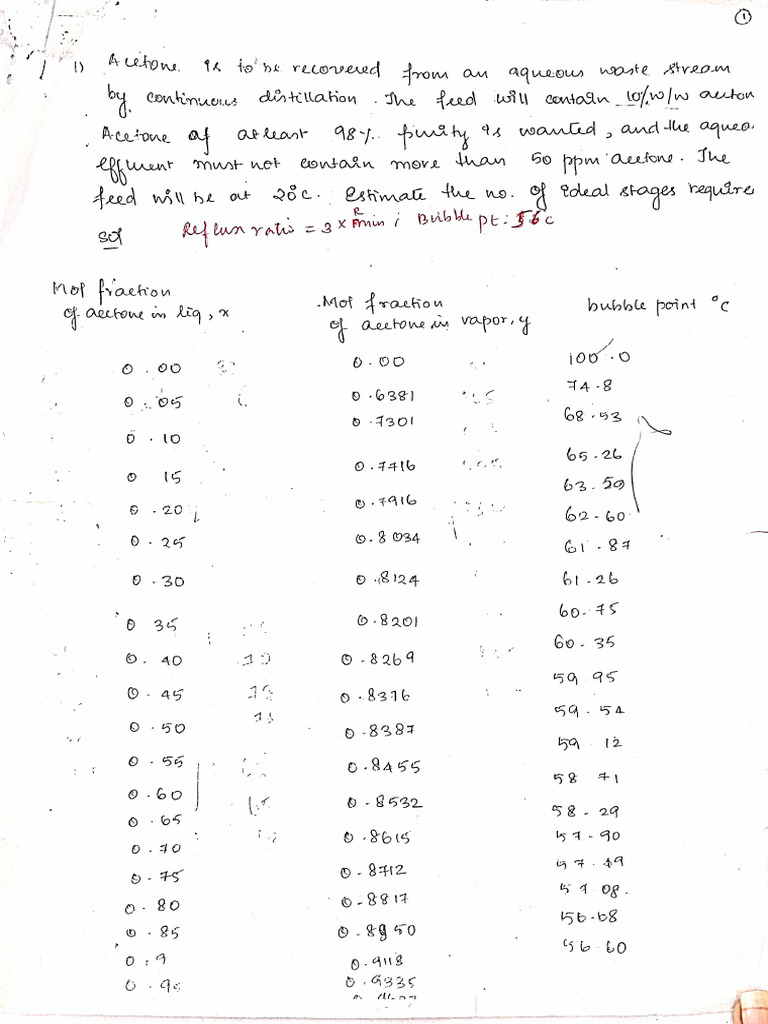 ①
1) Acetone is to be recovered from an aqueous waste stream
by continuous distillation. The feed will contain 10% w/w aceton
Acetone of atleast 98% purity is wanted, and the aqueo
effluent must not contain more than 50 ppm acetone. The
feed will be at 20°c. Estimate the no. of ideal stages require
sol Reflux ratio = 3 × Rmin ; Bubble pt: 56°c
Mol fraction of acetone in liq, x
Mol fraction of acetone in vapor, y
bubble point °c
0.00 0.00 100.0
0.05 0.6381 74.8
0.10 0.7301 68.53
0.15 0.7716 65.26
0.20 0.7916 63.59
0.25 0.8034 62.60
0.30 0.8124 61.87
0.35 0.8201 61.26
0.40 0.8269 60.75
0.45 0.8376 60.35
0.50 0.8387 59.95
0.55 0.8455 59.54
0.60 0.8532 59.12
0.65 0.8615 58.71
0.70 0.8712 58.29
0.75 0.8817 57.90
0.80 0.8950 57.49
0.85 0.9118 57.08.
0.9 0.9335 56.68
0.95 56.60